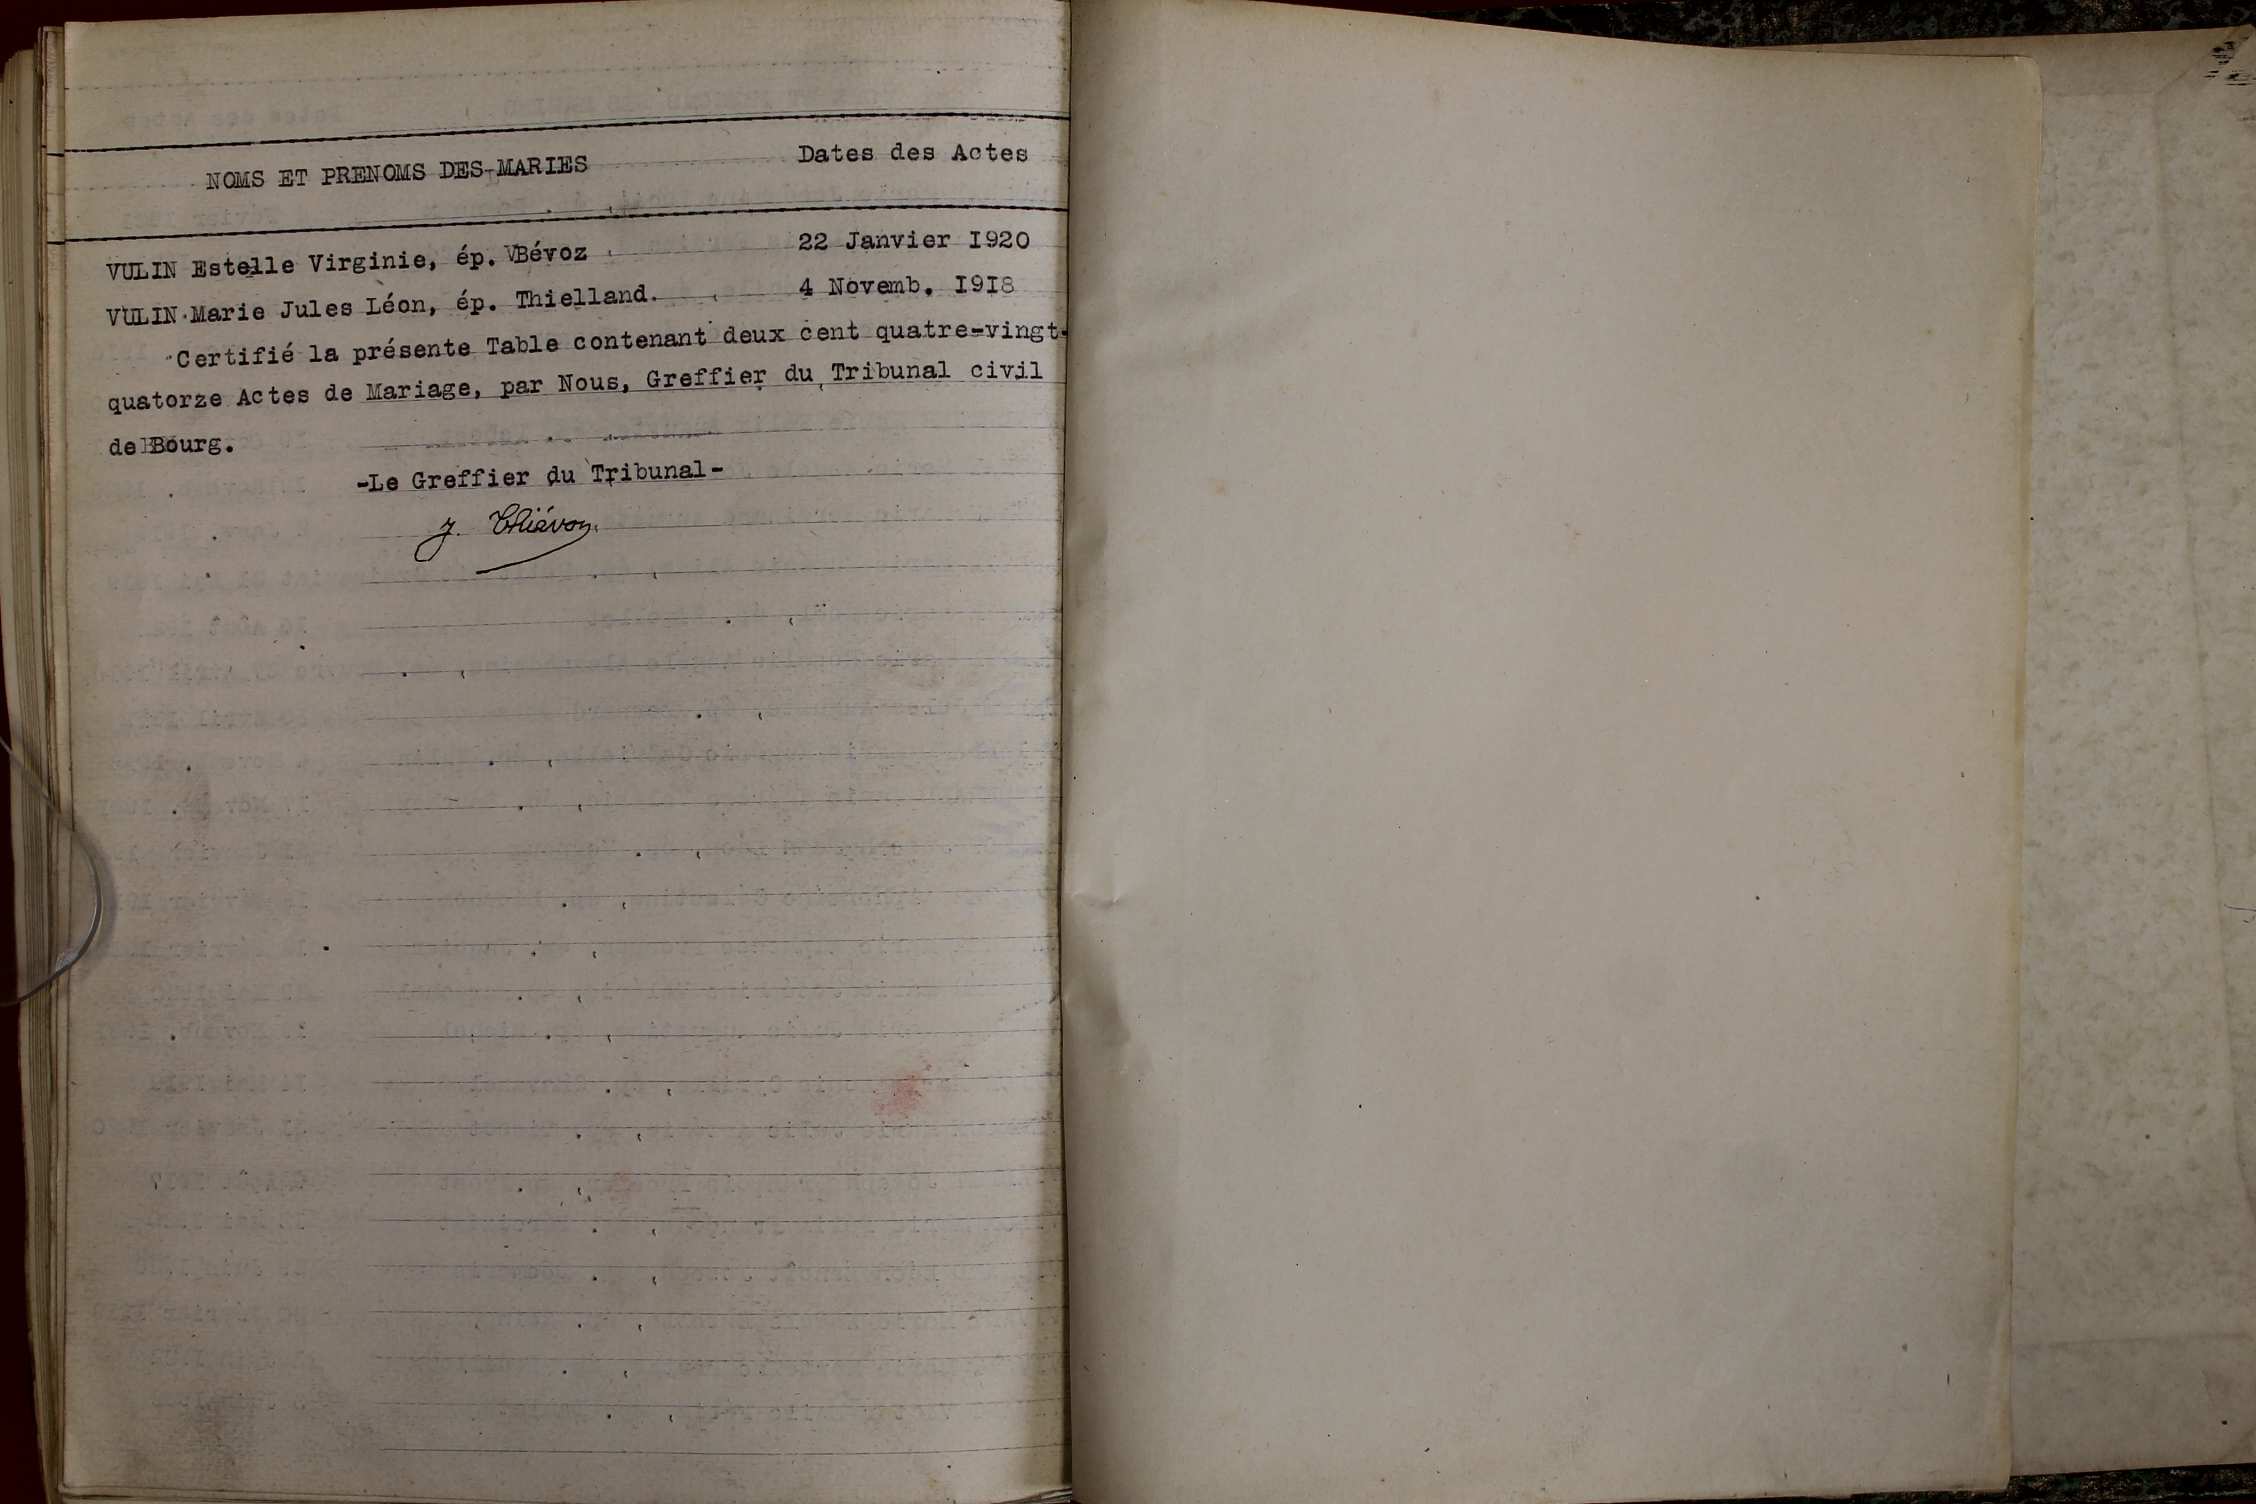 NOMS ET PRENOMS DES MARIES Dates des Actes
VULIN Estelle Virginie, ép. Bévoz 22 Janvier I920
VULIN Marie Jules Léon, ép. Thielland. 4 Novemb. I9I8
Certifié la présente Table contenant deux cent quatre-vingt-
quatorze Actes de Mariage, par Nous, Greffier du Tribunal civil
de Bourg.
-Le Greffier du Tribunal-